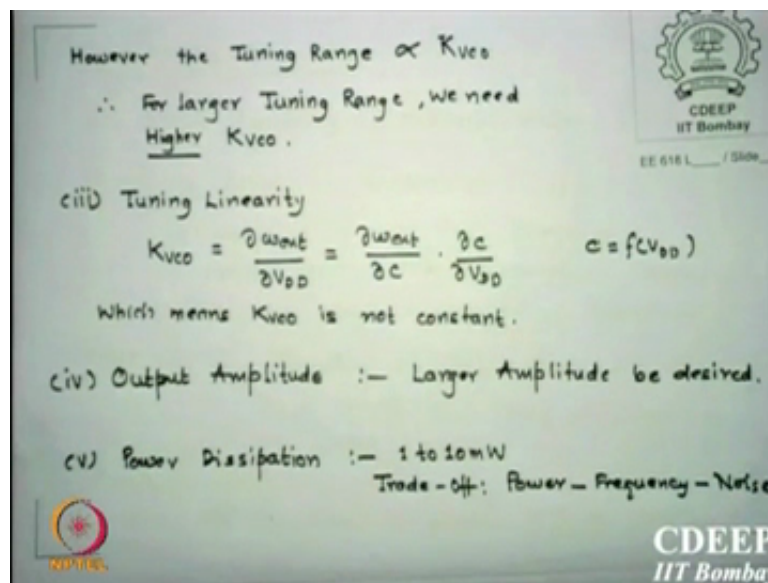 However the Tuning Range ∝ KVCO
∴ For larger Tuning Range, we need
Higher KVCO.
CDEEP
IIT Bombay
EE 618 L____ / Slide_
(iii) Tuning Linearity
KVCO = ∂ωout/∂VDD = ∂ωout/∂C · ∂C/∂VDD   C = f(VDD)
Which means KVCO is not constant.
(iv) Output Amplitude :— Larger Amplitude be desired.
(v) Power Dissipation :— 1 to 10mW
Trade-off: Power — Frequency — Noise
NPTEL
CDEEP
IIT Bombay